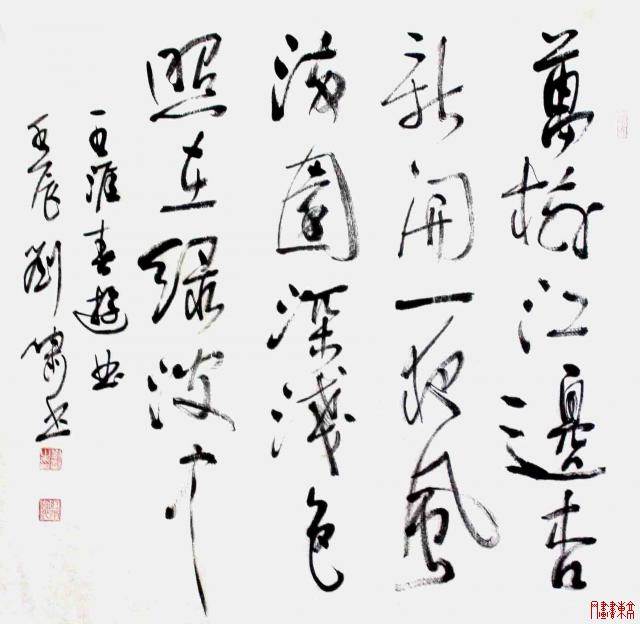 萬樹江邊杏
新開一夜風
滿園深淺色
照在綠波中
王涯春遊曲
壬辰劉嘯书